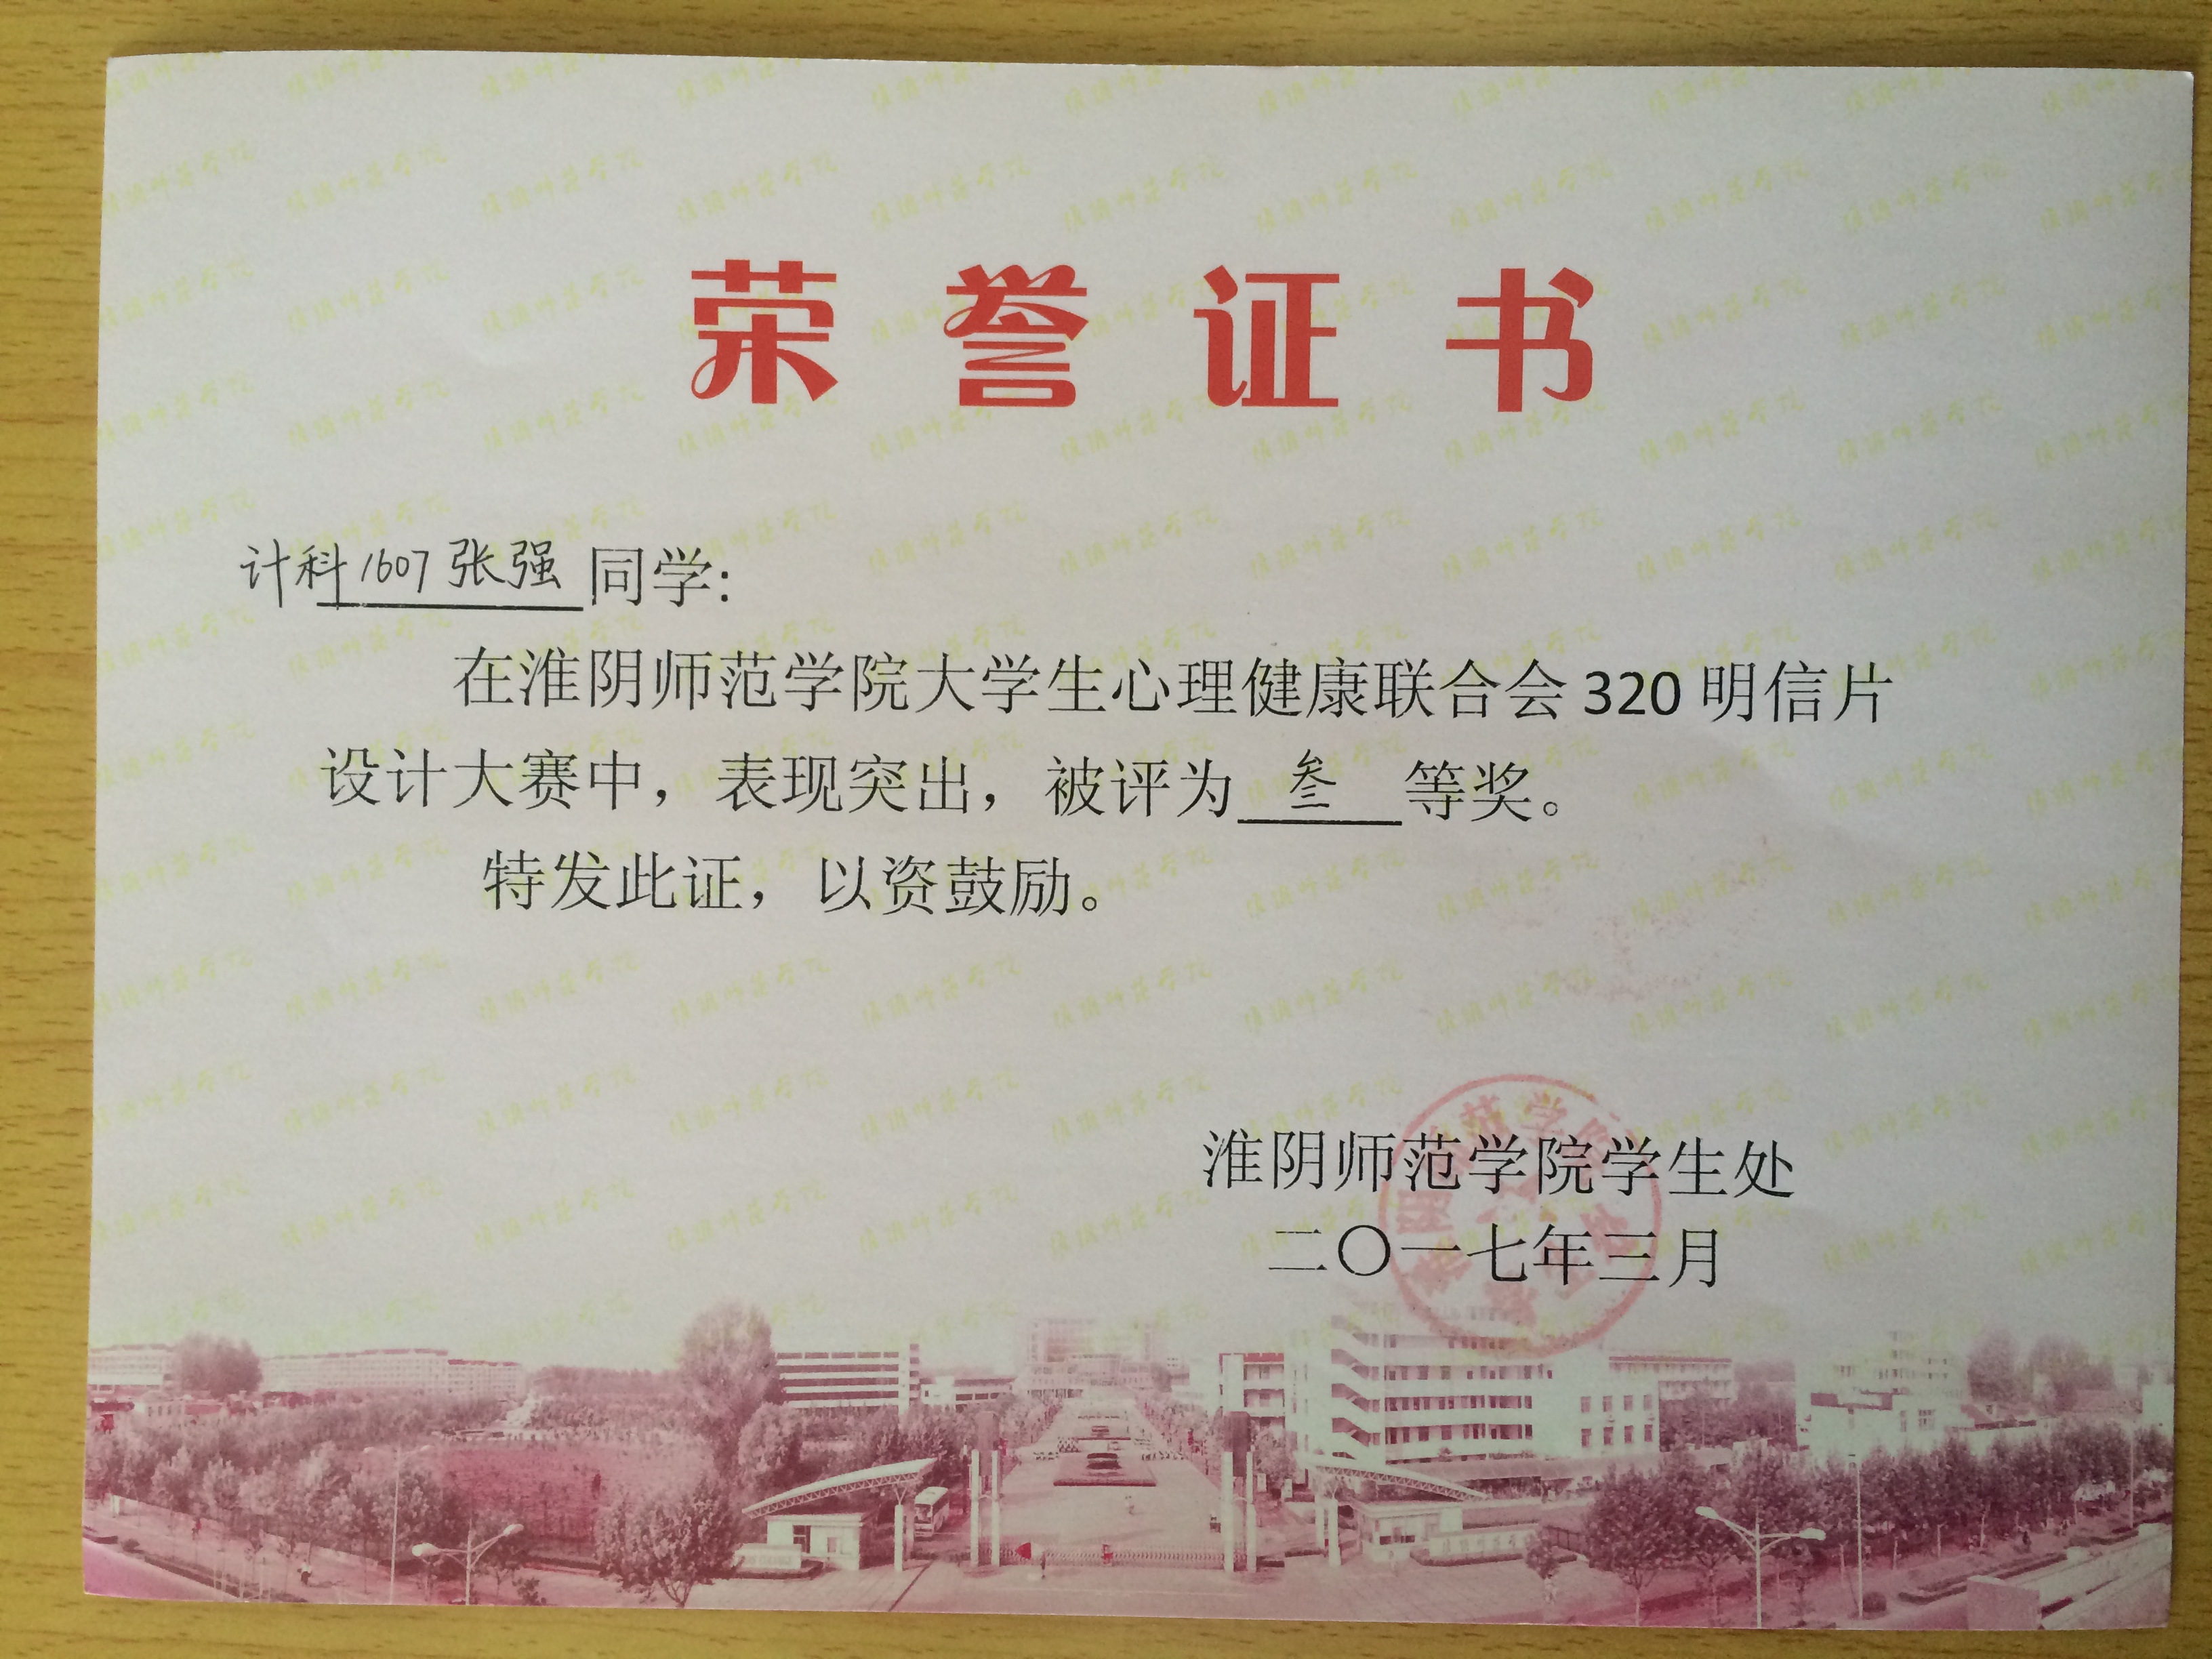 荣誉证书
计科1607张强同学:
在淮阴师范学院大学生心理健康联合会320明信片
设计大赛中，表现突出，被评为叁等奖。
特发此证，以资鼓励。
淮阴师范学院学生处
二〇一七年三月